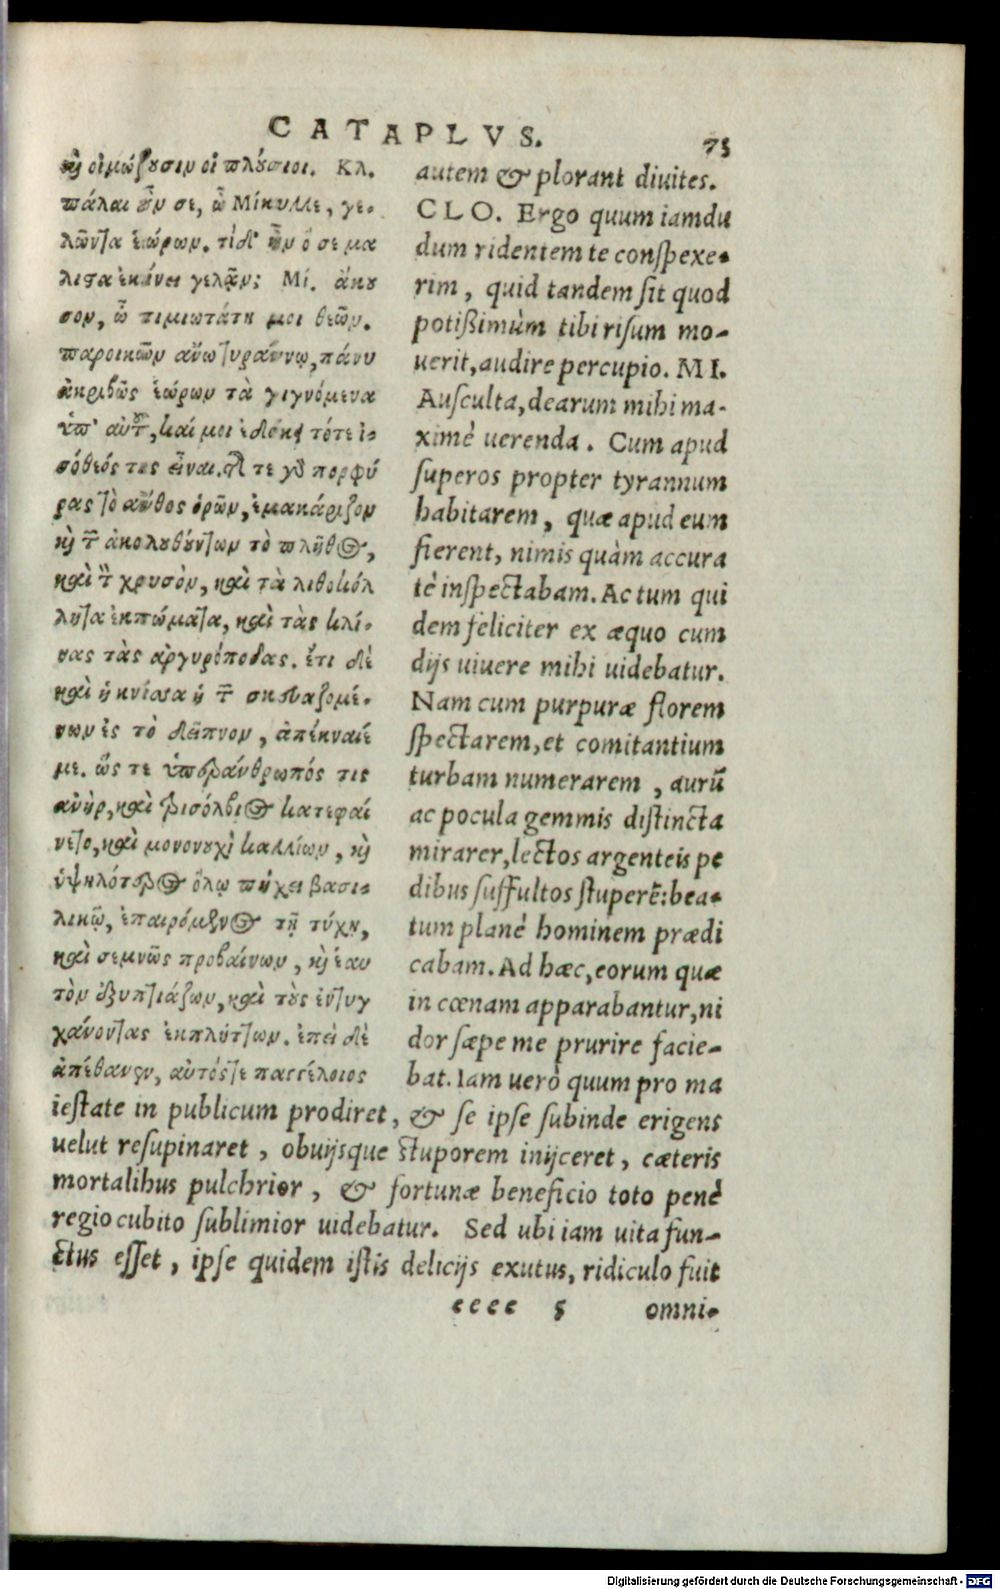 CATAPLVS.
75
καὶ οἰμώζουσιν οἱ πλούσιοι. Κλ.
πάλαι οὖν σε, ὦ Μίκυλλε, γε-
λῶντα ἑώρων. τί δ' οὖν ὅ σε μά
λιστα ἐκίνει γελᾶν; Μί. ἄκου
σον, ὦ τιμιωτάτη μοι θεῶν.
παροικῶν ἄνω τυράννῳ, πάνυ
ἀκριβῶς ἑώρων τὰ γιγνόμενα
ὑπ' αὐτοῦ, καί μοι ἐδόκει τότε ἰ-
σόθεός τις εἶναι. τῆς τε γὰρ πορφύ
ρας τὸ ἄνθος ὁρῶν, ἐμακάριζον
καὶ τῶν ἀκολουθούντων τὸ πλῆθος,
καὶ τὸν χρυσὸν, καὶ τὰ λιθοκόλ
λητα ἐκπώματα, καὶ τὰς κλί-
νας τὰς ἀργυρόποδας. ἔτι δὲ
καὶ ἡ κνίσσα ἡ τῶν σκευαζομέ-
νων ἐς τὸ δεῖπνον, ἀπέκναιέ
με. ὥς τε ὑπεράνθρωπός τις
ἀνὴρ, καὶ τρισόλβιος κατεφαί
νετο, καὶ μονονουχὶ καλλίων, καὶ
ὑψηλότερος ὅλῳ πήχει βασι-
λικῷ, ἐπαιρόμενος τῇ τύχῃ,
καὶ σεμνῶς προβαίνων, καὶ ἑαυ
τὸν ἐξυπτιάζων, καὶ τοὺς ἐντυγ
χάνοντας ἐκπλήττων. ἐπεὶ δὲ
ἀπέθανεν, αὐτός τε παγγέλοιος
autem & plorant diuites.
CLO. Ergo quum iamdu
dum ridentem te conspexe-
rim, quid tandem sit quod
potißimùm tibi risum mo-
uerit, audire percupio. MI.
Ausculta, dearum mihi ma-
ximè uerenda. Cum apud
superos propter tyrannum
habitarem, quæ apud eum
fierent, nimis quàm accura
tè inspectabam. Ac tum qui
dem feliciter ex æquo cum
dijs uiuere mihi uidebatur.
Nam cum purpuræ florem
spectarem, et comitantium
turbam numerarem, aurũ
ac pocula gemmis distincta
mirarer, lectos argenteis pe
dibus suffultos stuperẽ: bea-
tum planè hominem prædi
cabam. Ad hæc, eorum quæ
in cœnam apparabantur, ni
dor sæpe me prurire facie-
bat. Iam uerò quum pro ma
iestate in publicum prodiret, & se ipse subinde erigens
uelut resupinaret, obuijsque stuporem inijceret, cæteris
mortalibus pulchrior, & fortunæ beneficio toto penè
regio cubito sublimior uidebatur. Sed ubi iam uita fun-
ctus esset, ipse quidem istis delicijs exutus, ridiculo fuit
eeee 5 omni-
Digitalisierung gefördert durch die Deutsche Forschungsgemeinschaft - DFG